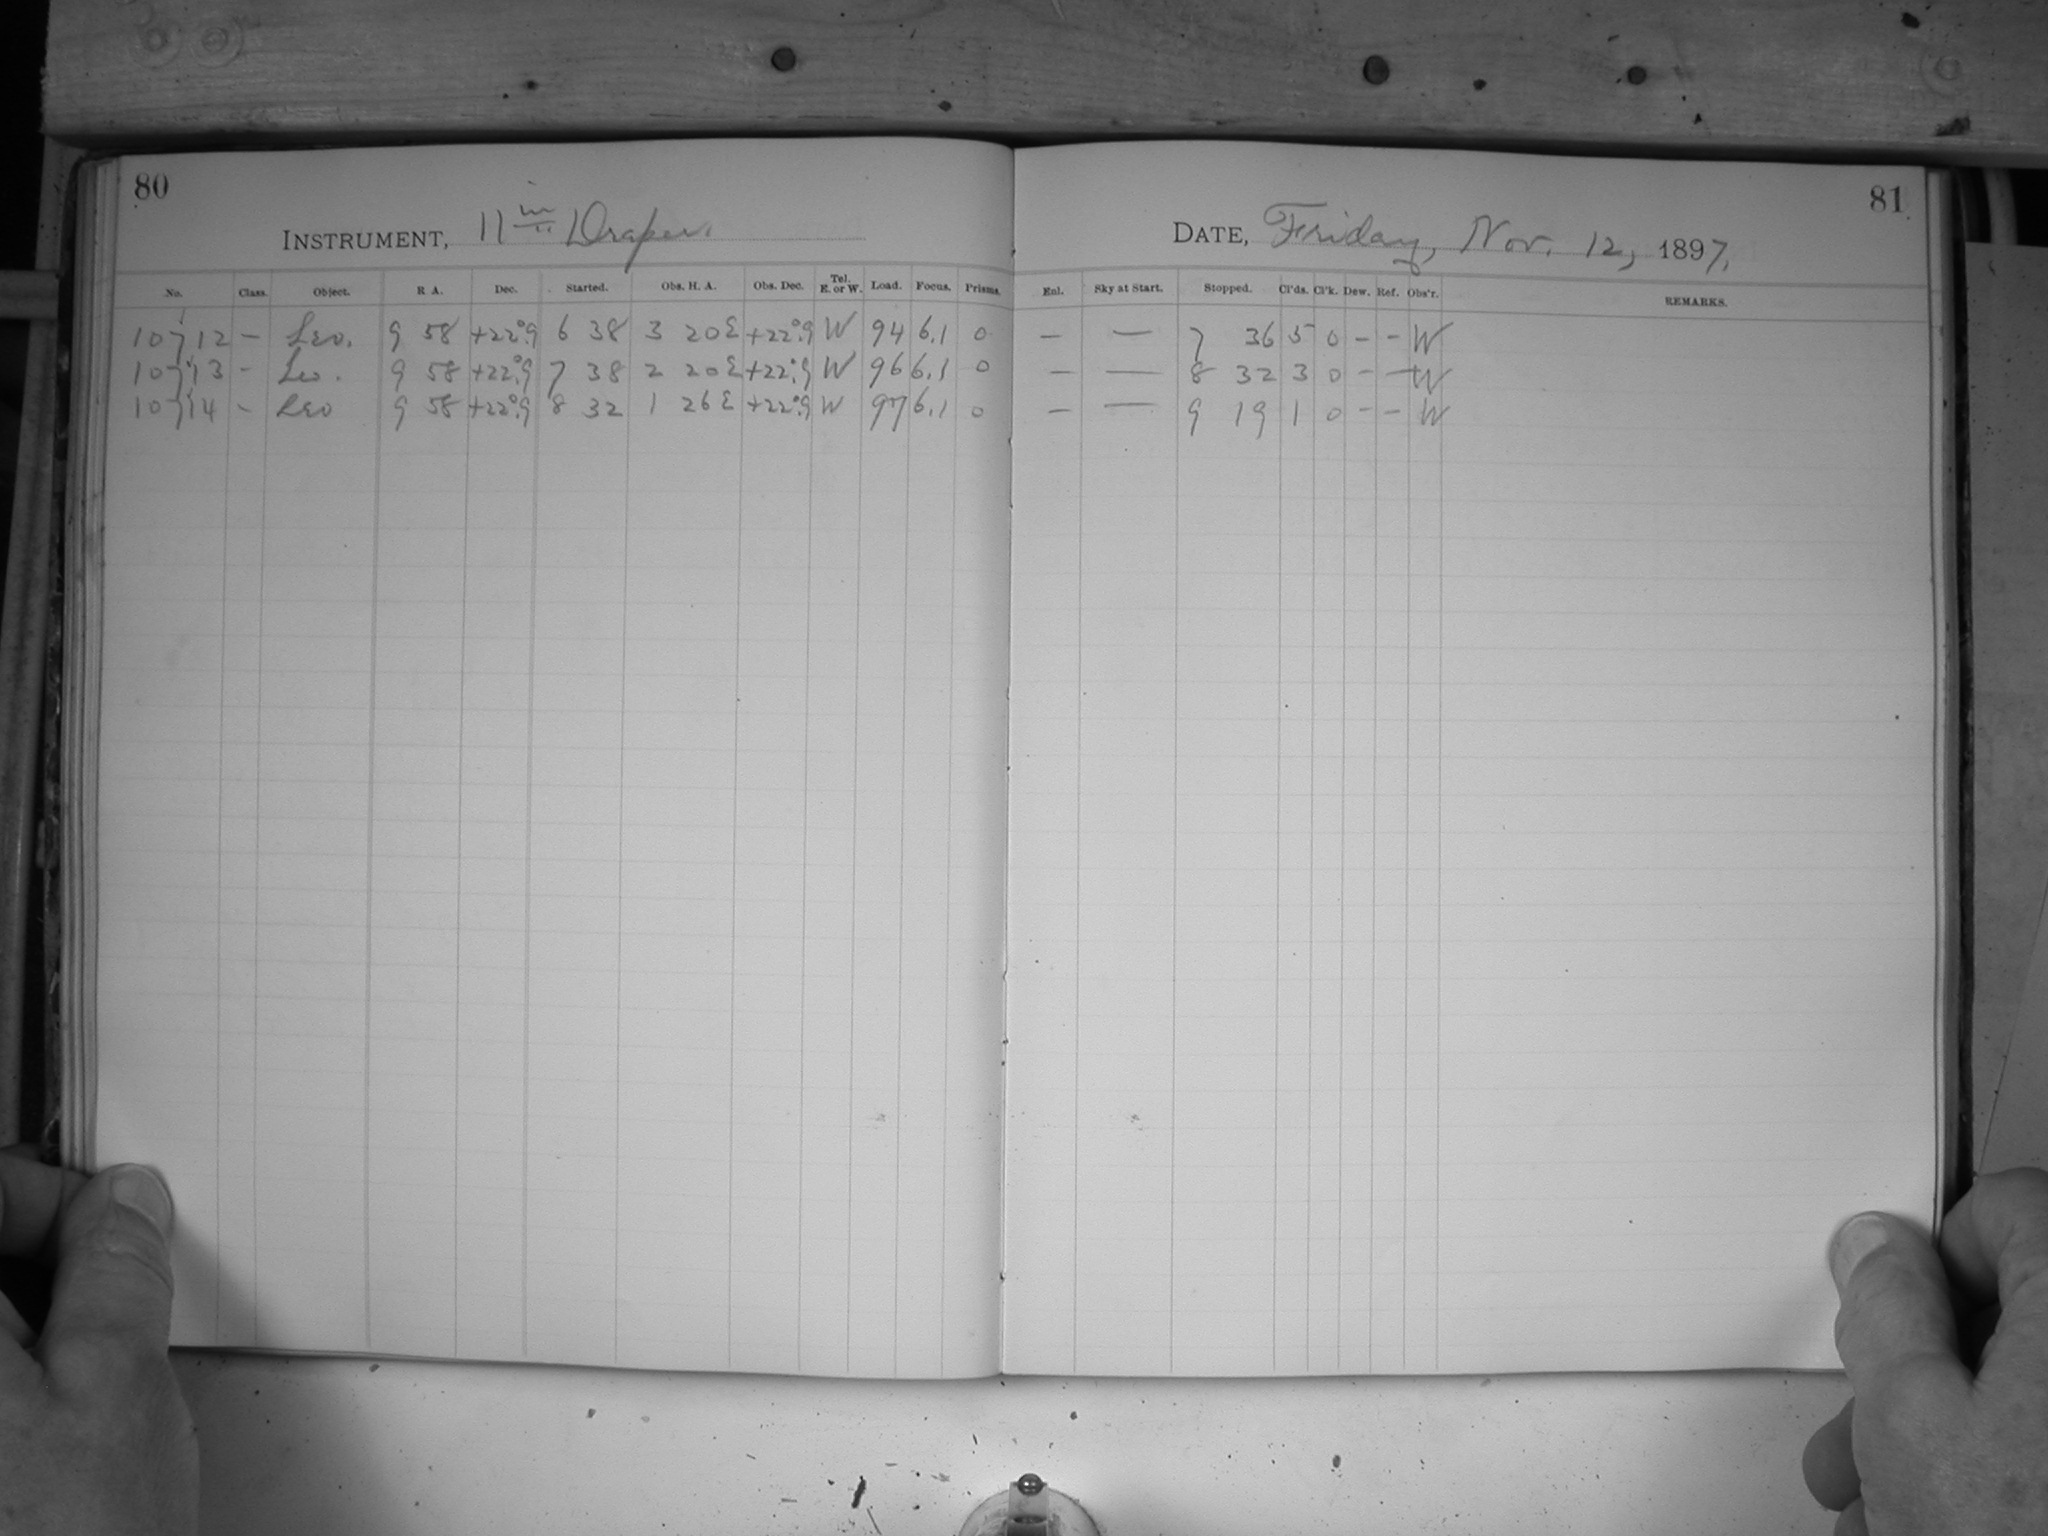 80
INSTRUMENT, 11 in Draper.
No. Class. Object. R A. Dec. Started. Obs. H. A. Obs. Dec. Tel. E. or W. Load. Focus. Prisms.
10712 – Leo. 9 58 +22°.9 6 38 3 20 E +22°.9 W 94 6.1 0
10713 – Leo. 9 58 +22°.9 7 38 2 20 E +22°.9 W 96 6.1 0
10714 – Leo 9 58 +22°.9 8 32 1 26 E +22°.9 W 97 6.1 0
81
DATE, Friday, Nov. 12, 1897.
Enl. Sky at Start. Stopped. Cl'ds. Cl'k. Dew. Ref. Obs'r. REMARKS.
– – 7 36 5 0 – – W
– – 8 32 3 0 – – W
– – 9 19 1 0 – – W